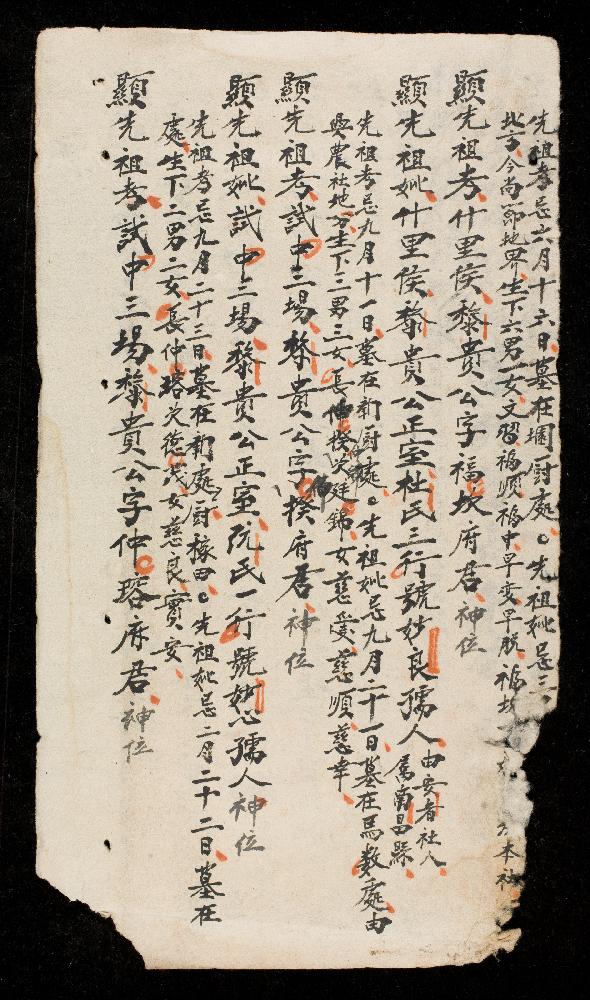 先祖考忌六月十六日墓在墹廚處。先祖妣忌三
北方今尚節地界生下六男一女文習福順福中早变早脱福坎 本社
顯先祖考什里侯黎貴公字福坎府君神位
顯先祖妣什里侯黎貴公正室杜氏三行號妙良孺人由安者社人属南昌縣
先祖考忌九月十一日墓在新廚處。先祖妣忌九月二十一日墓在馬数處由
興農社地方生下三男三女長仲揆次廷錦女慈爱慈順慈幸
顯先祖考試中三場黎貴公字仲揆府君神位
顯先祖妣試中三場黎貴公正室阮氏一行號孺人神位
先祖考忌九月二十三日墓在新處廚椽田。先祖妣忌二月二十二日墓在
處生下二男二女長仲瑢次德茂女慈良實安
顯先祖考試中三場黎貴公字仲瑢府君神位